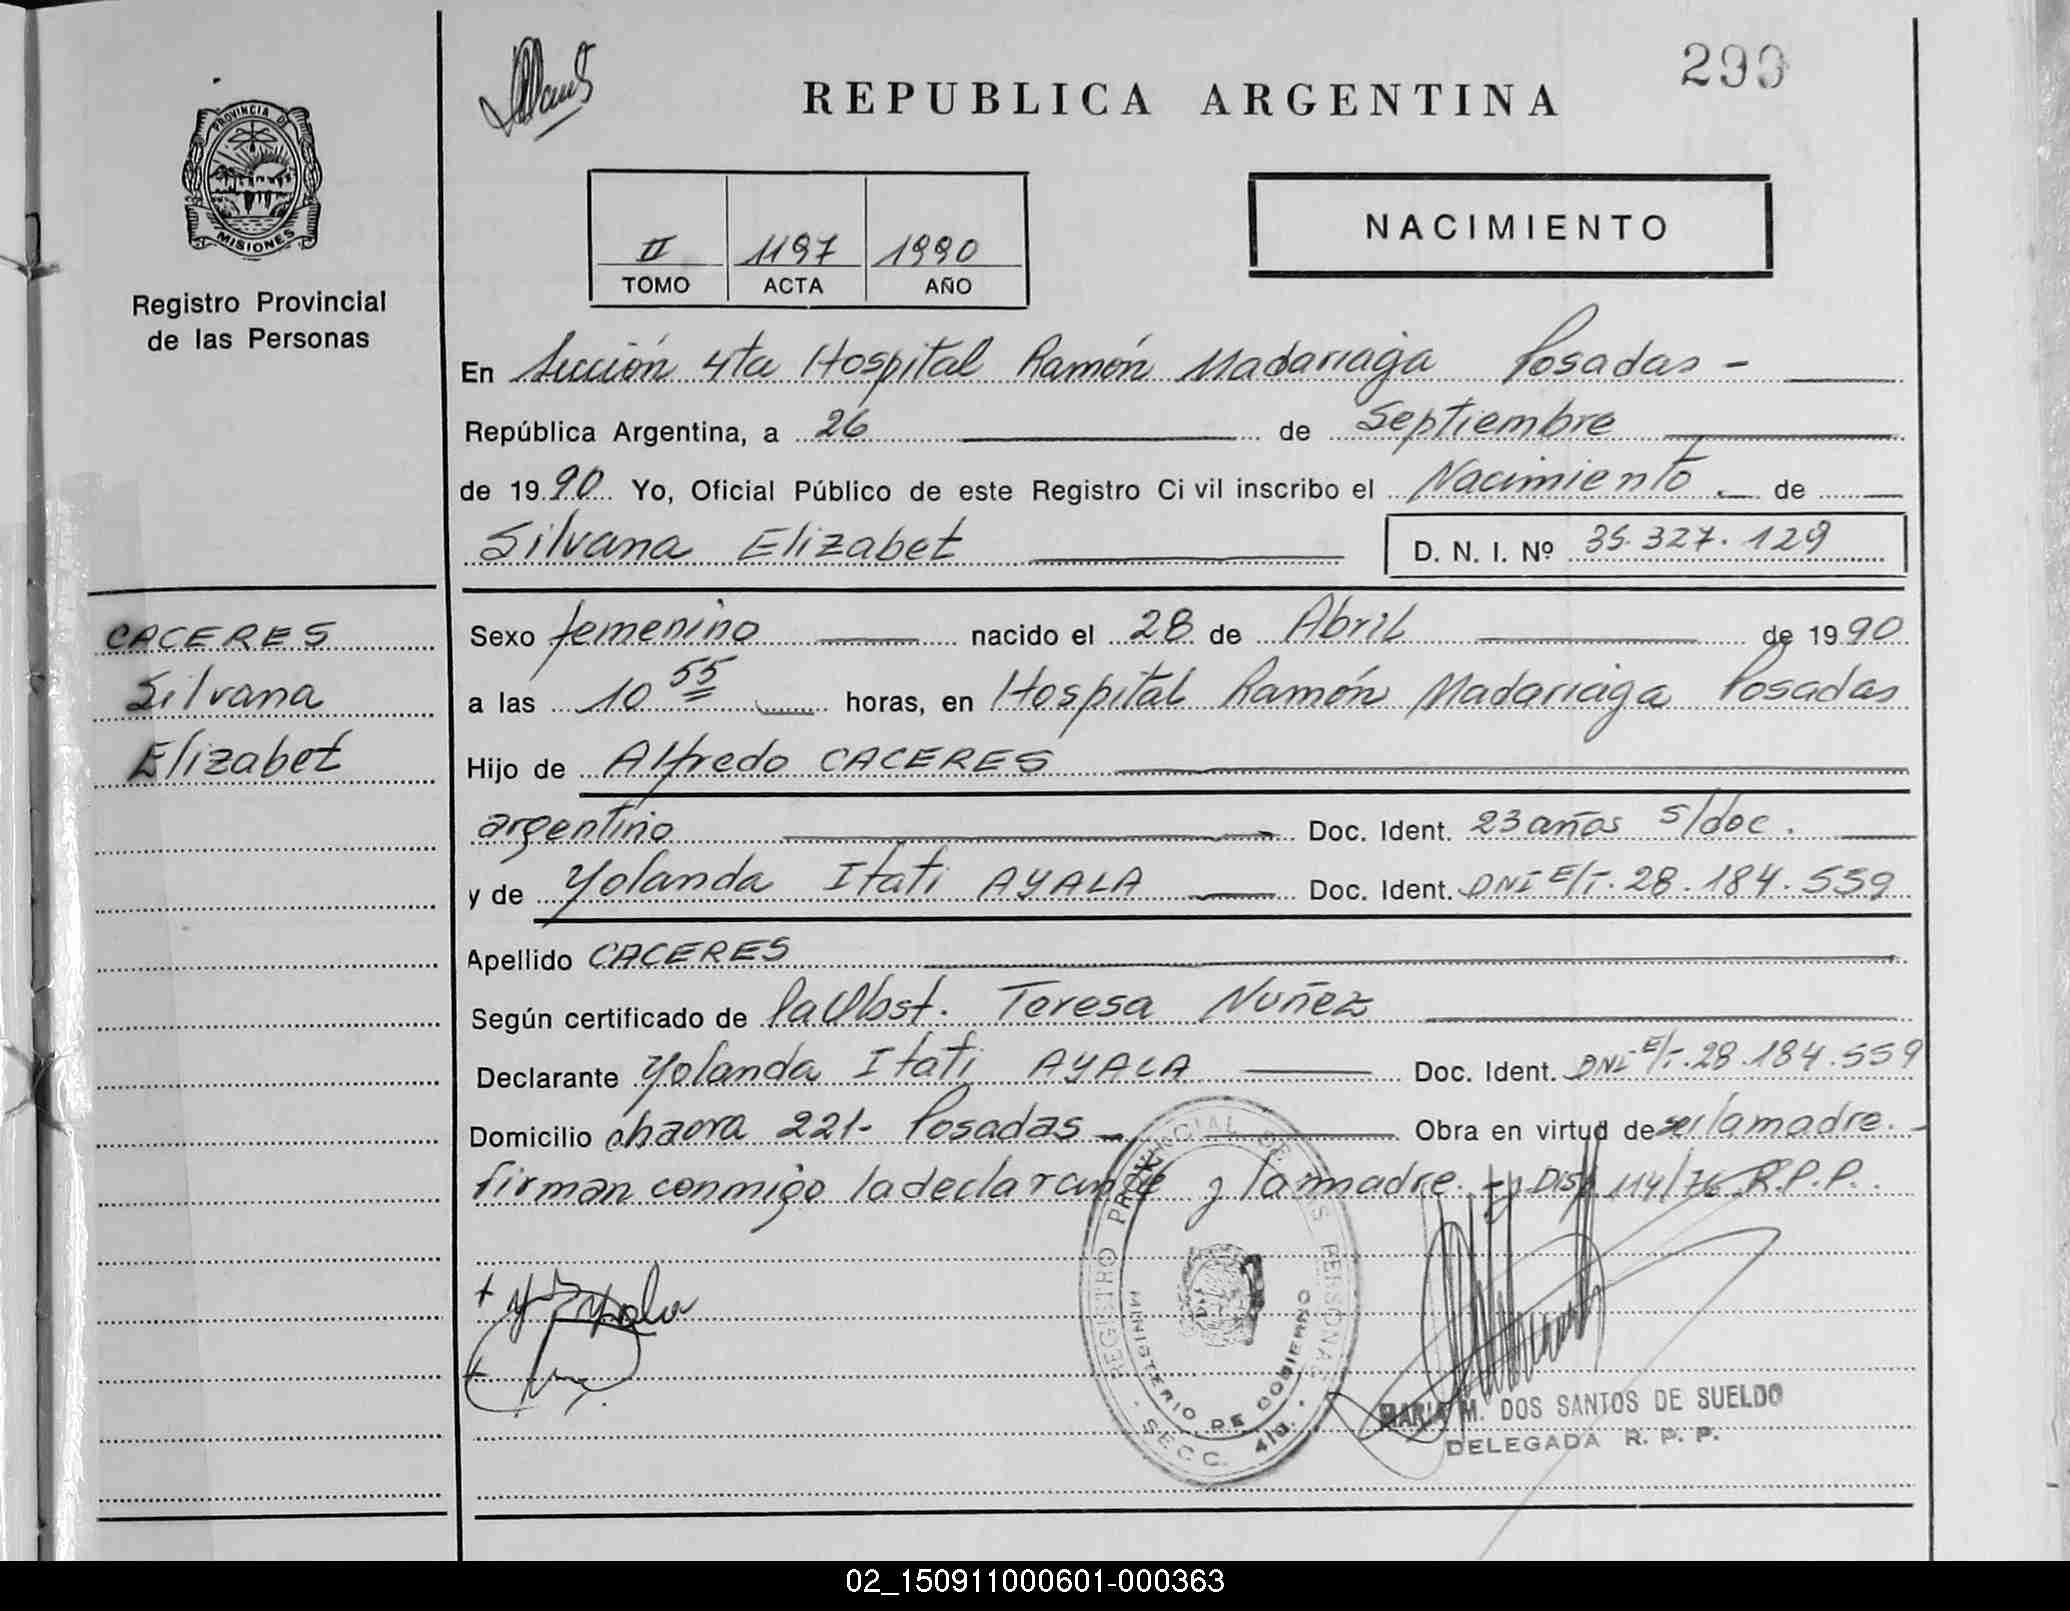 299
REPUBLICA ARGENTINA
PROVINCIA DE
MISIONES
Registro Provincial
de las Personas
NACIMIENTO
II 1197 1990
TOMO ACTA AÑO
En Sección 4ta Hospital Ramón Madariaga Posadas -
República Argentina, a 26 de Septiembre
de 1990 Yo, Oficial Público de este Registro Civil inscribo el Nacimiento de
Silvana Elizabet D. N. I. Nº 35.327.129
CACERES
Silvana
Elizabet
Sexo femenino nacido el 28 de Abril de 1990
a las 10 55 horas, en Hospital Ramón Madariaga Posadas
Hijo de Alfredo CACERES
argentino Doc. Ident. 23 años s/doc.
y de Yolanda Itati AYALA Doc. Ident. DNI E/T. 28.184.559
Apellido CACERES
Según certificado de la Obst. Teresa Nuñez
Declarante Yolanda Itati AYALA Doc. Ident. DNI E/T. 28.184.559
Domicilio chacra 221- Posadas - Obra en virtud de ser la madre. -
firman conmigo la declarante y la madre. - Disp 114/76 R.P.P.
REGISTRO PROVINCIAL DE LAS PERSONAS
MINISTERIO DE GOBIERNO
SECC. 4ta.
MARIA M. DOS SANTOS DE SUELDO
DELEGADA R. P. P.
02_150911000601-000363